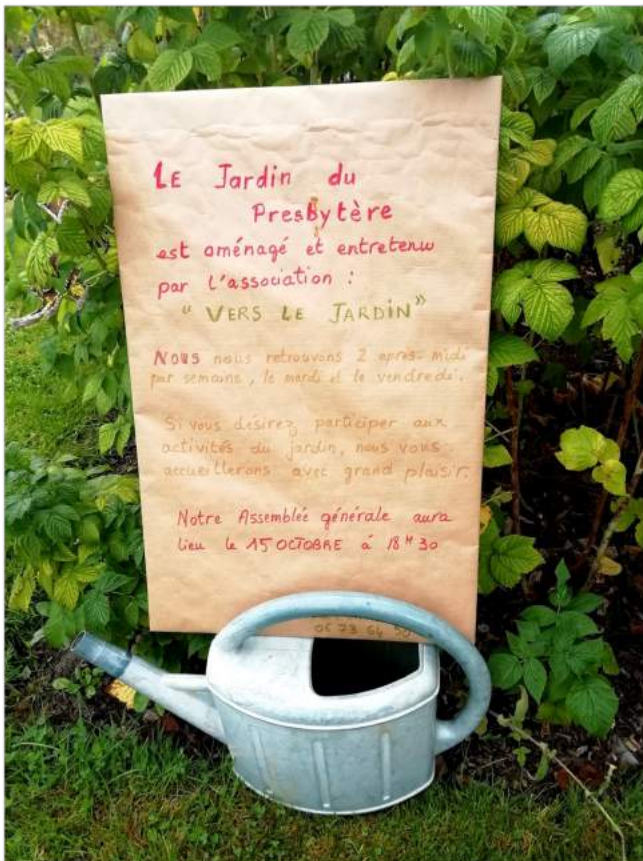 LE Jardin du
Presbytère
est aménagé et entretenu
par l'association :
" VERS LE JARDIN"
NOUS nous retrouvons 2 après-midi
par semaine, le mardi et le vendredi.
Si vous désirez participer aux
activités du jardin, nous vous
accueillerons avec grand plaisir.
Notre Assemblée générale aura
lieu le 15 OCTOBRE à 18H30
06 73 64